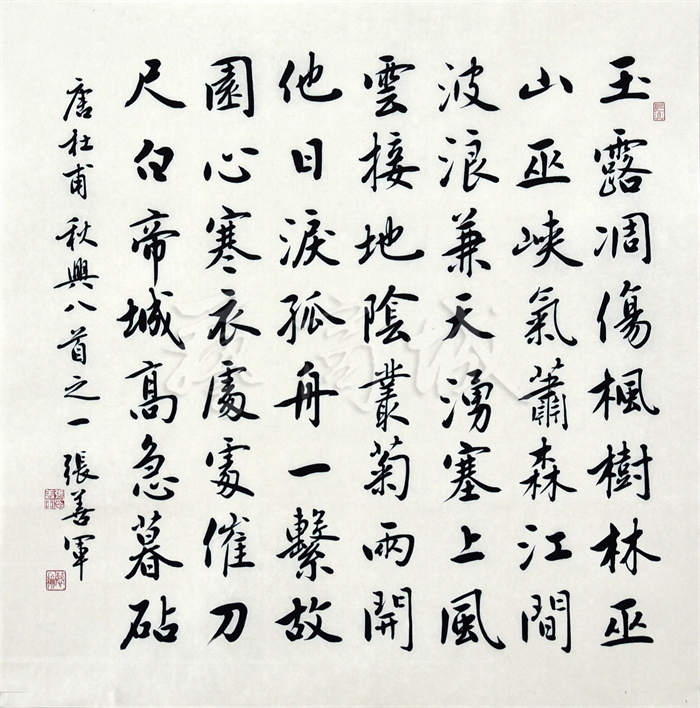 玉露凋傷楓樹林巫
山巫峽氣蕭森江間
波浪兼天湧塞上風
雲接地陰叢菊兩開
他日淚孤舟一繫故
園心寒衣處處催刀
尺白帝城髙急暮砧
唐杜甫秋興八首之一張善軍